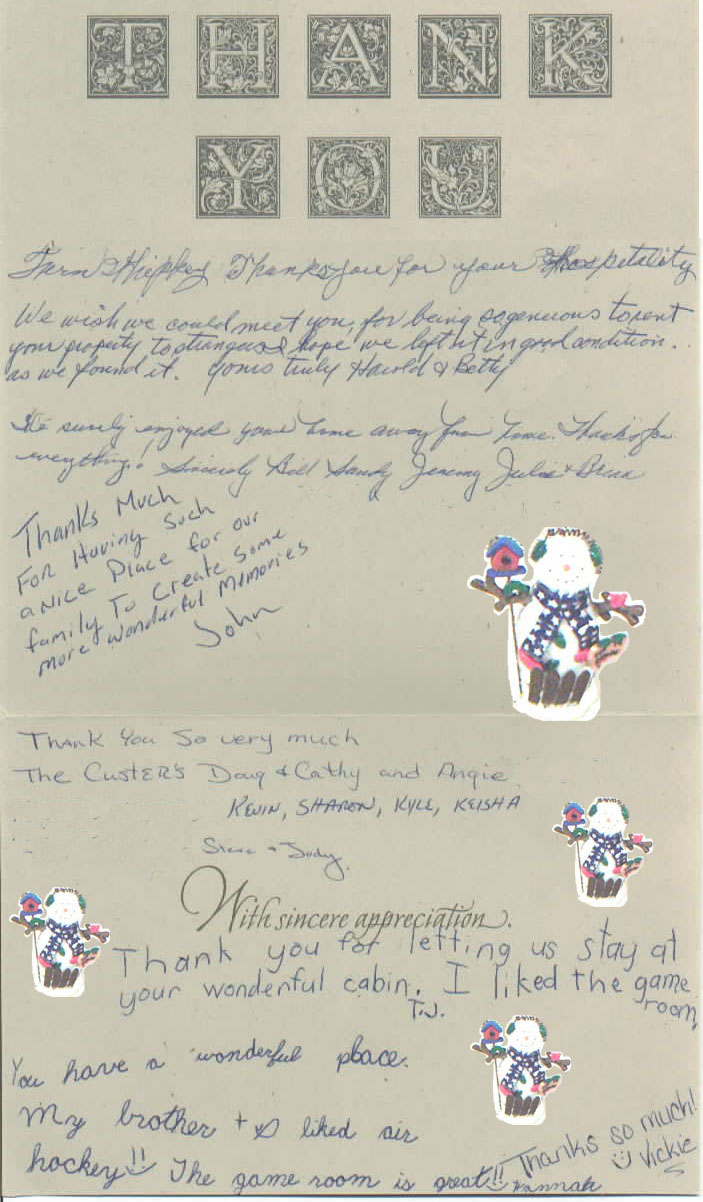 THANK
YOU
Farm Thank you for your Hospitality
We wish we could meet you, for being so generous to rent
your property to strangers I hope we left it in good condition.
as we found it. yours truly Harold & Betty
We surely enjoyed your home away from home. Thanks for
everything! Sincerely Bill Sandy Jeremy Julie + Brian
Thanks Much
For Having Such
a Nice Place for our
family To Create Some
more wonderful Memories
John
Thank You So very much
The Custer's Doug & Cathy and Angie
Kevin, Sharon, Kyle, Keisha
Steve + Judy.
With sincere appreciation.
Thank you for letting us stay at
your wonderful cabin. I liked the game
room,
T.J.
You have a wonderful place.
My brother + I liked air
hockey!! The game room is great!! Hannah
Thanks so much!
Vickie